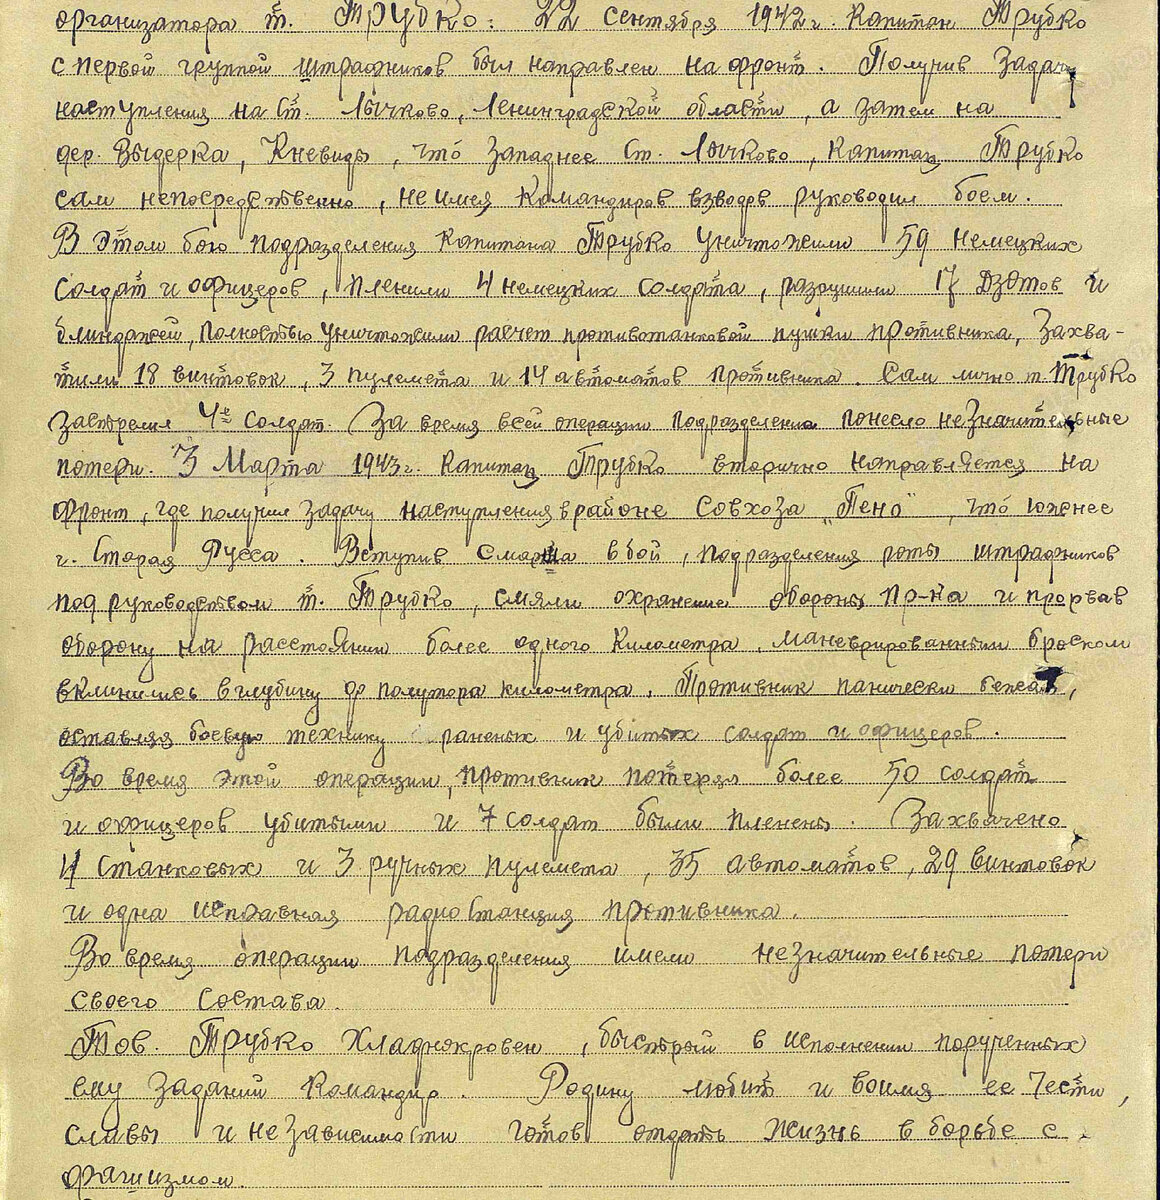 организатора т. Трубко: 22 сентября 1942 г. Капитан Трубко
с первой группой штрафников был направлен на фронт. Получив задачу
наступления на ст. Лычково, Ленинградской области, а затем на
дер. Выдерка, Кневицы, что западнее ст. Лычково, Капитан Трубко
сам непосредственно, не имея командиров взводов руководил боем.
В этом бою подразделения Капитана Трубко уничтожили 59 немецких
солдат и офицеров, пленили 4 немецких солдата, разрушили 17 Дзотов и
блиндажей, полностью уничтожили расчет противотанковой пушки противника, захва-
тили 18 винтовок, 3 пулемета и 14 автоматов противника. Сам лично т. Трубко
застрелил 4е солдат. За время всей операции подразделение понесло незначительные
потери. 3 Марта 1943 г. Капитан Трубко вторично направляется на
фронт, где получил задачу наступления в районе Совхоза "Пено", что южнее
г. Старая Русса. Вступив с марша в бой, подразделения роты штрафников
под руководством т. Трубко, смяли охранение обороны пр-ка и прорвав
оборону на расстоянии более одного километра, маневрированным броском
вклинились в глубину до полутора километра. Противник панически бежал,
оставляя боевую технику раненых и убитых солдат и офицеров.
Во время этой операции, противник потерял более 50 солдат
и офицеров убитыми и 7 солдат были пленены. Захвачено
4 станковых и 3 ручных пулемета, 35 автоматов, 29 винтовок
и одна исправная радиостанция противника.
Во время операции подразделения имели незначительные потери
своего состава.
Тов. Трубко хладнокровен, быстрый в исполнении порученных
ему заданий Командир. Родину любит и во имя ее чести,
славы и независимости готов отдать жизнь в борьбе с
фашизмом.